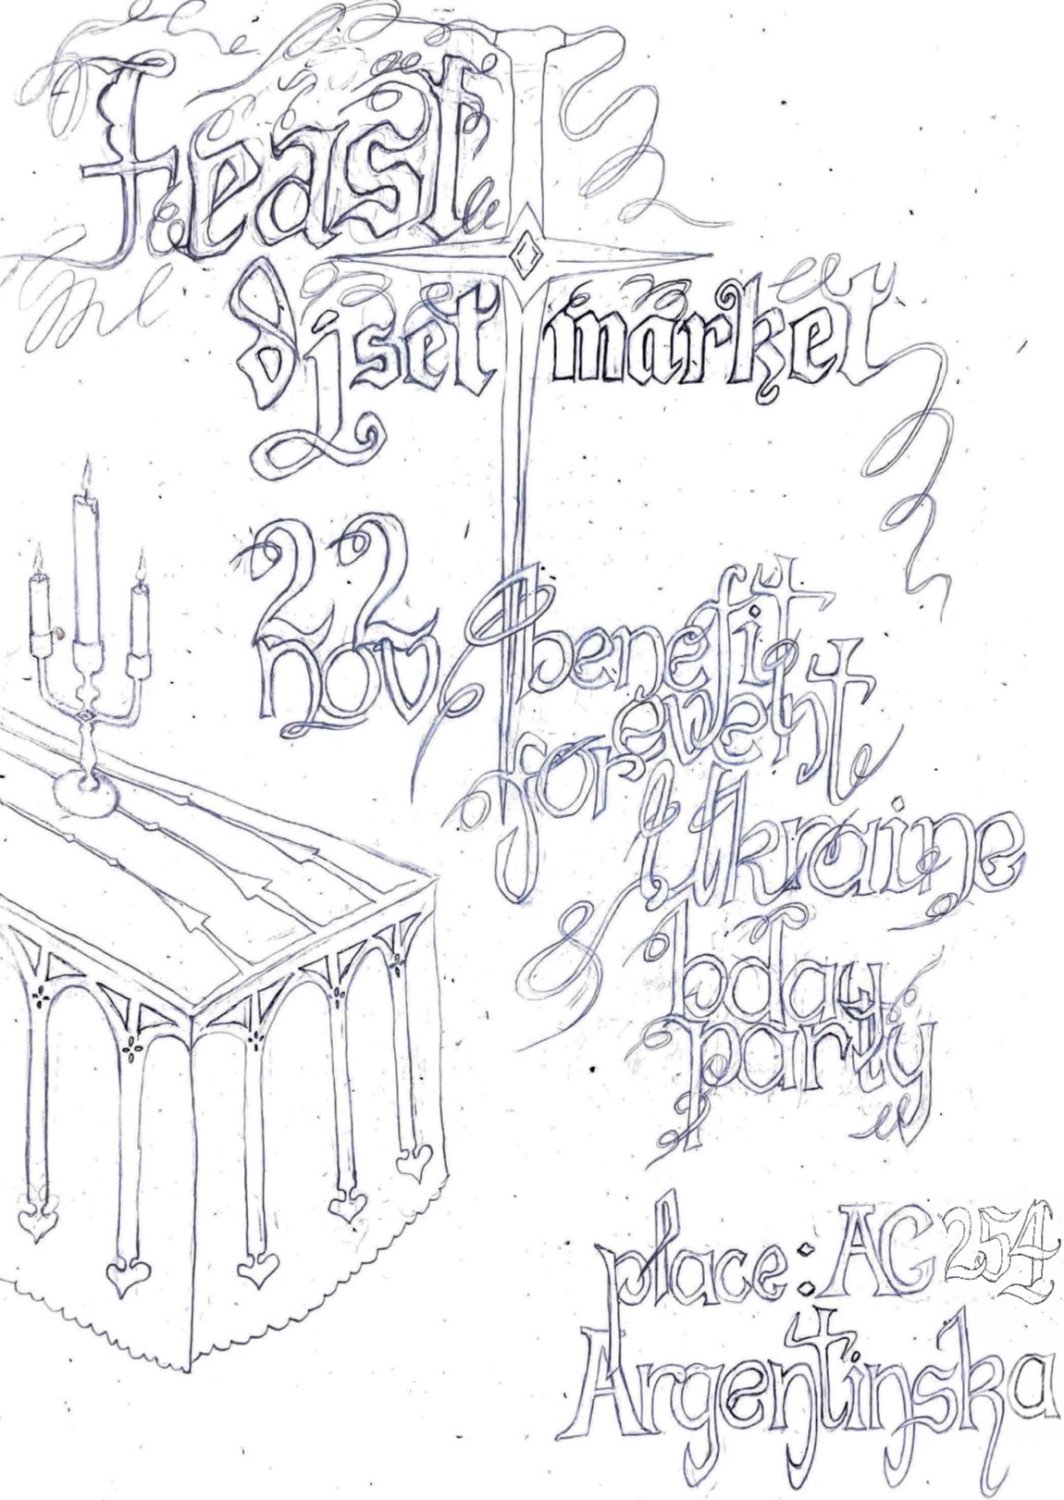 Feast
djset market
22
nov
benefit
event
for Ukraine
& bday
party
place: AG 254
Argentinska